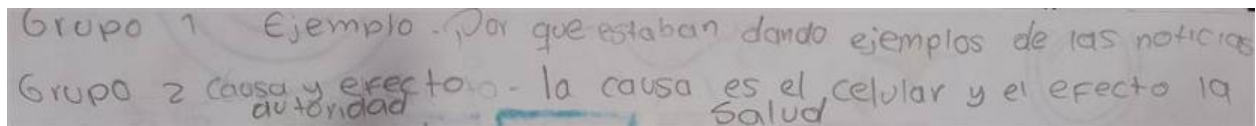 Grupo 1 Ejemplo. Por que estaban dando ejemplos de las noticias
Grupo 2 Causa y efecto - la causa es el celular y el efecto la
autoridad salud